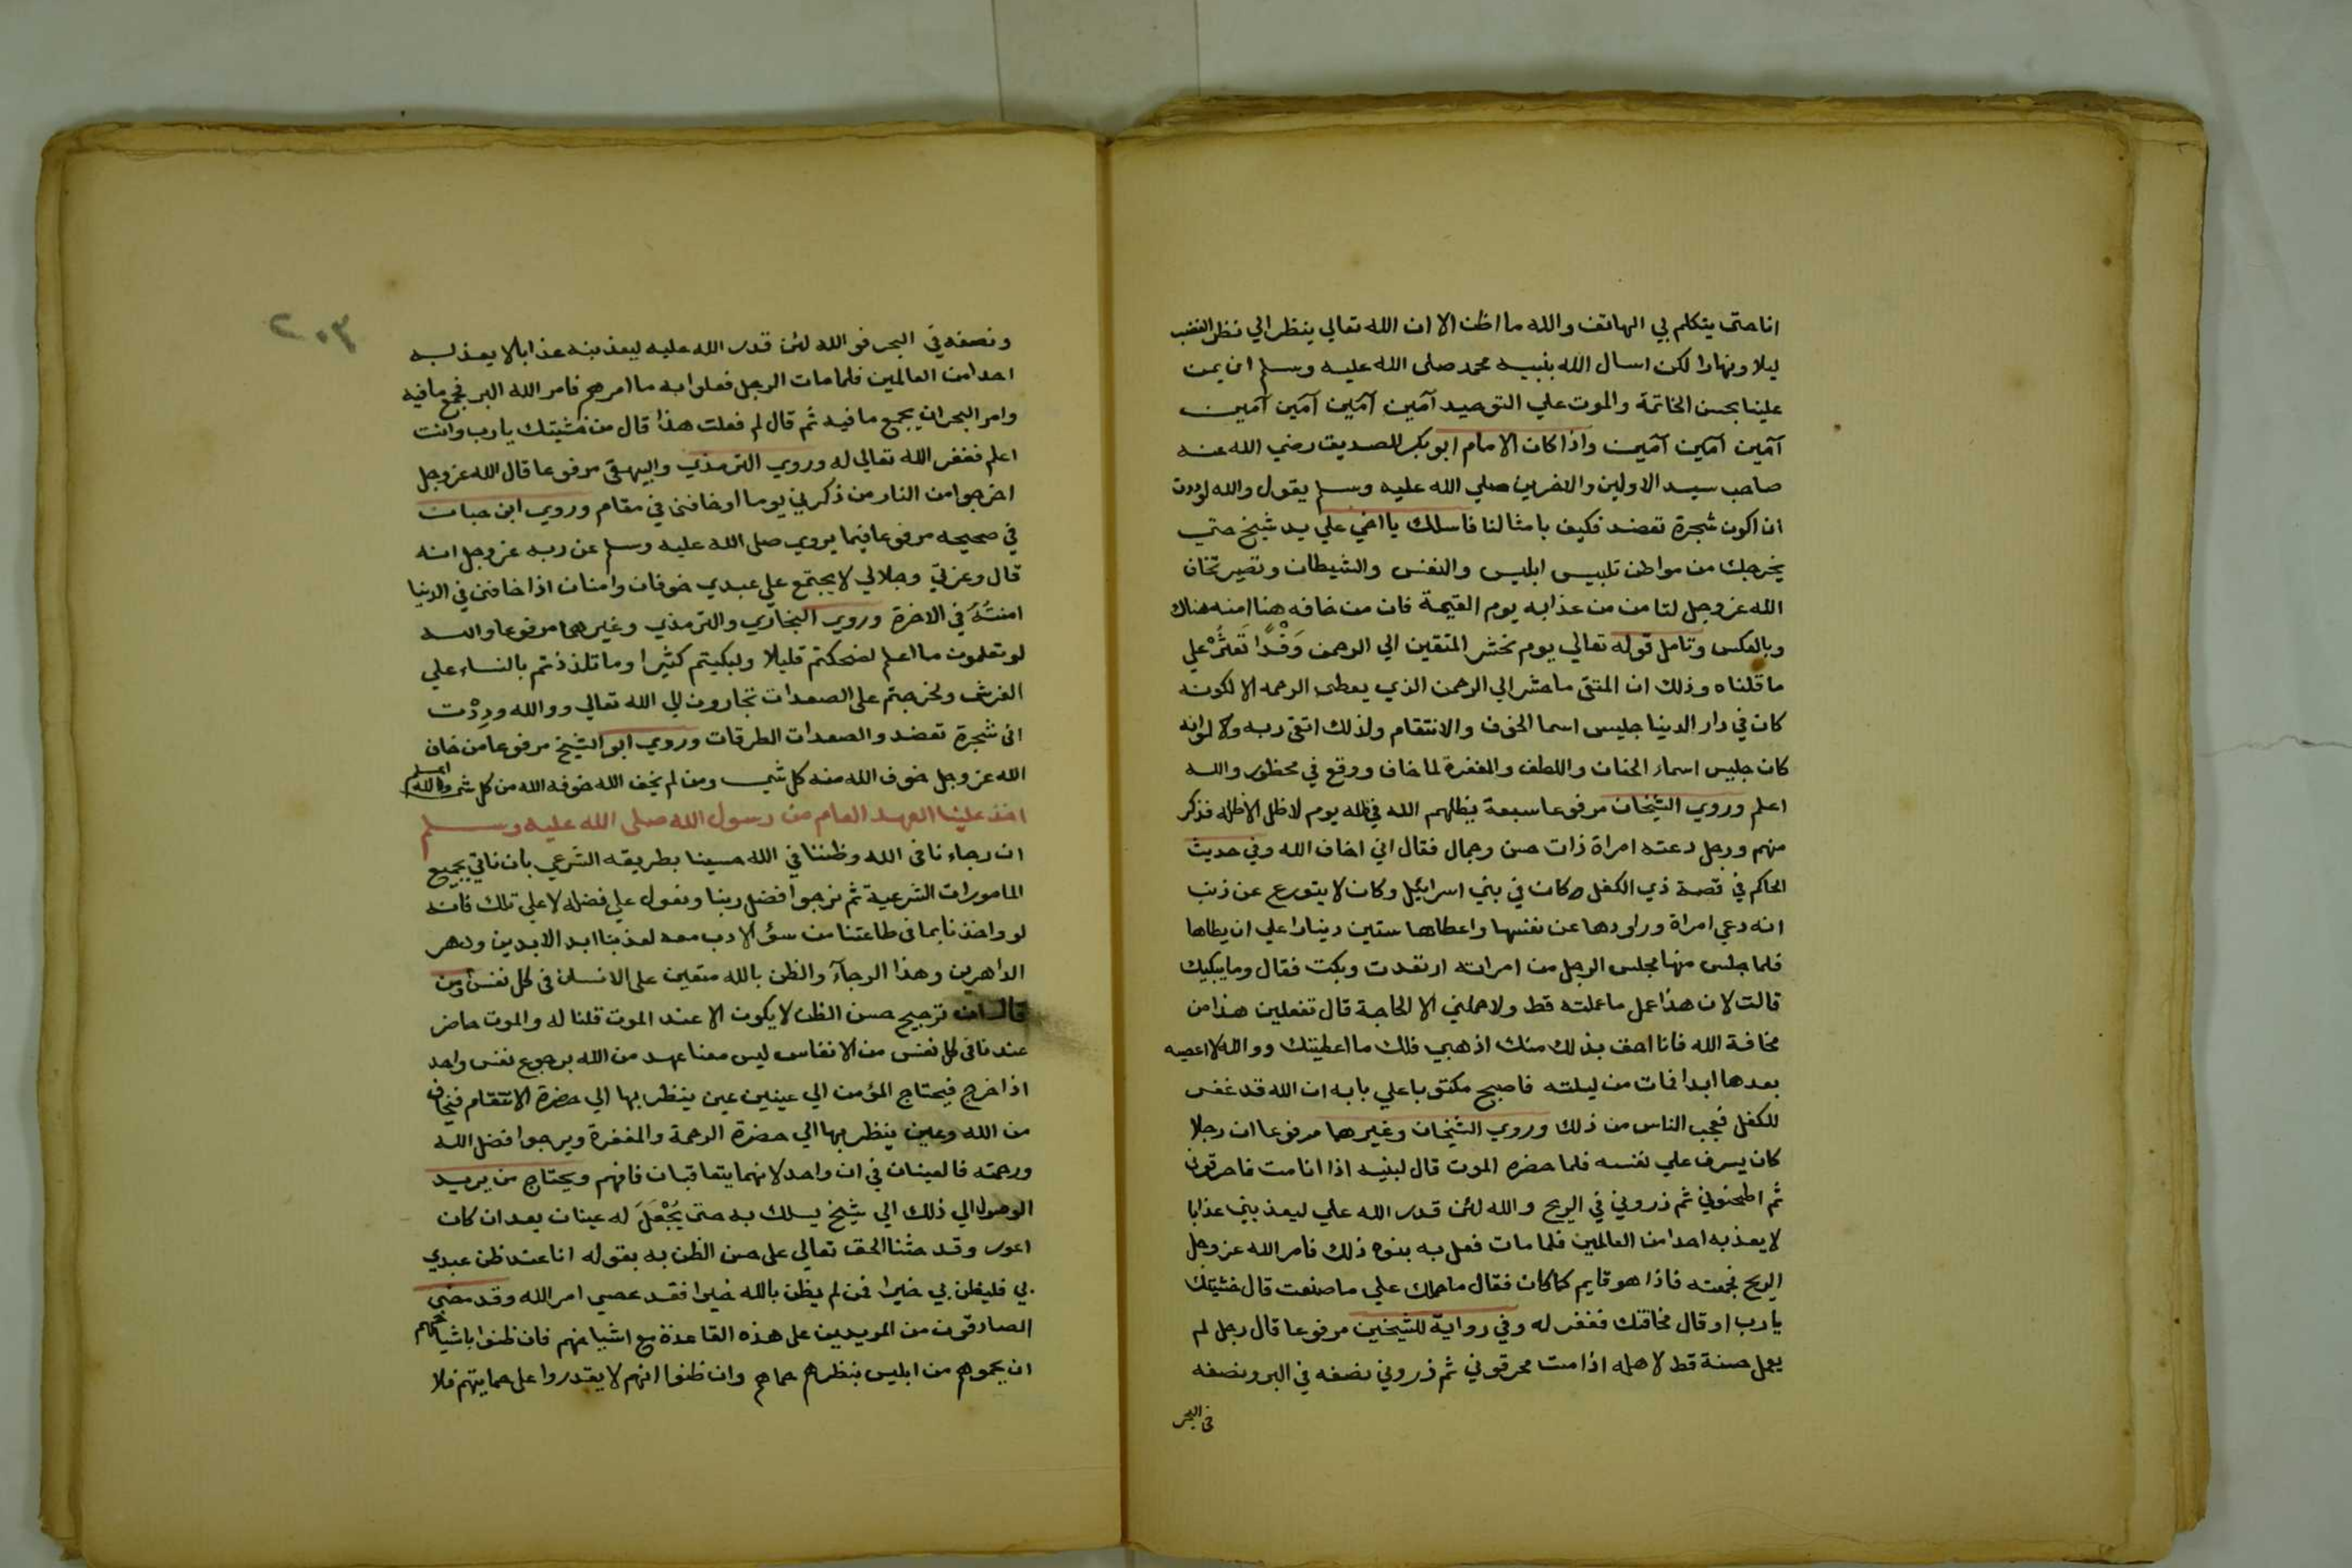 انا حتى يتكلم بي الهاتف والله ما اظن الا ان الله تعالي ينظر الي نظر الغضب
ليلا ونهارا لكن اسال الله بنبيه محمد صلى الله عليه وسلم ان يمن
علينا بحسن الخاتمة والموت علي التوحيد آمين آمين آمين آمين
آمين آمين آمين واذا كان الامام ابو بكر الصديق رضي الله عنه
صاحب سيد الاولين والاخرين صلي الله عليه وسلم يقول والله لوددت
ان اكون شجرة تعضد فكيف بامثالنا فاسلك يا اخي علي يد شيخ حتي
يخرجك من مواطن تلبيس ابليس والنفس والشيطان وتصير تخاف
الله عز وجل لتامن من عذابه يوم القيمة فان من خافه هنا امنه هناك
وبالعكس وتامل قوله تعالي يوم نحشر المتقين الي الرحمن وَفْدًا تَعثُرْ علي
ما قلناه وذلك ان المتقى ما حشر الي الرحمن الذي يعطى الرحمه الا لكونه
كان في دار الدنيا جليس اسما الخوف والانتقام ولذلك اتقى ربه ولا لوانه
كان جليس اسماء الحنان واللطف والمغفرة لما خاف ووقع في محظور والله
اعلم وروي الشيخان مرفوعا سبعة يظلهم الله في ظله يوم لا ظل الا ظله فذكر
منهم ورجل دعته امراة ذات حسن وجمال فقال اني اخاف الله وفي حديث
الحاكم في قصة ذي الكفل وكان في بني اسرائيل وكان لا يتورع عن ذنب
انه دعي امراة وراودها عن نفسها واعطاها ستين دينارا علي ان يطاها
فلما جلس منها مجلس الرجل من امراته ارتعدت وبكت فقال وما يبكيك
قالت لان هذا عمل ما عملته قط ولا حملني الا الحاجة قال تفعلين هذا من
مخافة الله فانا احق بذلك منك اذهبي فلك ما اعطيتك ووالله لا اعصيه
بعدها ابدا فمات من ليلته فاصبح مكتوبا علي بابه ان الله قد غفر
للكفل فعجب الناس من ذلك وروي الشيخان وغيرهما مرفوعا ان رجلا
كان يسرف علي نفسه فلما حضره الموت قال لبنيه اذا انا مت فاحرقوني
ثم اطحنوني ثم ذروني في الريح والله لئن قدر الله علي ليعذبني عذابا
لا يعذبه احدا من العالمين فلما مات فعل به بنوه ذلك فامر الله عز وجل
الريح فجمعته فاذا هو قايم كما كان فقال ما حملك علي ما صنعت قال خشيتك
يا رب او قال مخافتك فغفر له وفي رواية للشيخين مرفوعا قال رجل لم
يعمل حسنة قط لاهله اذا مت فحرقوني ثم ذروني نصفه في البر ونصفه
في البحر
ونصفه في البحر فوالله لئن قدر الله عليه ليعذبنه عذابا لا يعذبه
احدا من العالمين فلما مات الرجل فعلوا به ما امرهم فامر الله البر فجمع ما فيه
وامر البحر ان يجمع ما فيه ثم قال لم فعلت هذا قال من خشيتك يا رب وانت
اعلم فغفر الله تعالى له وروي الترمذي والبيهقى مرفوعا قال الله عز وجل
اخرجوا من النار من ذكرني يوما او خافنى في مقام وروي ابن حبان
في صحيحه مرفوعا فيما يروي صلى الله عليه وسلم عن ربه عز وجل انه
قال وعزتي وجلالي لا يجتمع علي عبدي خوفان وامنان اذا خافنى في الدنيا
امنتُه في الاخرة وروي البخاري والترمذي وغيرهما مرفوعا والله
لو تعلمون ما اعلم لضحكتم قليلا ولبكيتم كثيرا وما تلذذتم بالنساء علي
الفرش ولخرجتم على الصعدات تجارون الي الله تعالي ووالله ودِدْت
انى شجرة تعضد والصعدات الطرقات وروي ابو الشيخ مرفوعا من خاف
الله عز وجل خوف الله منه كل شي ومن لم يخف الله خوفه الله من كل شي والله اعلم
اخذ علينا العهد العام من رسول الله صلى الله عليه وسلم
ان رجاءنا فى الله وظننا في الله حسينا بطريقه الشرعي بان ناتي بجميع
المامورات الشرعية ثم نرجوا فضل ربنا ونعول علي فضله لا على تلك فانه
لو واخذنا بما فى طاعتنا من سؤ الادب معه لعذبنا ابد الابدين ودهر
الداهرين وهذا الرجآء والظن بالله متعين على الانسان فى كل نفس ومن
قال ان ترجيح حسن الظن لا يكون الا عند الموت قلنا له والموت حاضر
عندنا فى كل نفس من الانفاس ليس معنا عهد من الله برجوع نفس واحد
اذا خرج فيحتاج المؤمن الي عينين عين ينظر بها الي حضرة الانتقام فيخاف
من الله وعين ينظر بها الي حضرة الرحمة والمغفرة ويرجوا فضل الله
ورحمته فالعينان في ان واحد لانهما يتعاقبان فافهم ويحتاج من يريد
الوصول الي ذلك الي شيخ يسلك به حتى يَجْعَلَ له عينان بعد ان كان
اعور وقد حثنا الحق تعالي على حسن الظن به بقوله انا عند ظن عبدي
بي فليظن بي خيرا فمن لم يظن بالله خيرا فقد عصي امر الله وقد مضي
الصادقون من المريدين على هذه القاعدة مع اشياخهم فان ظنوا باشياخهم
ان يحموهم من ابليس بنظرهم حماهم وان ظنوا انهم لا يقدروا على حمايتهم فلا